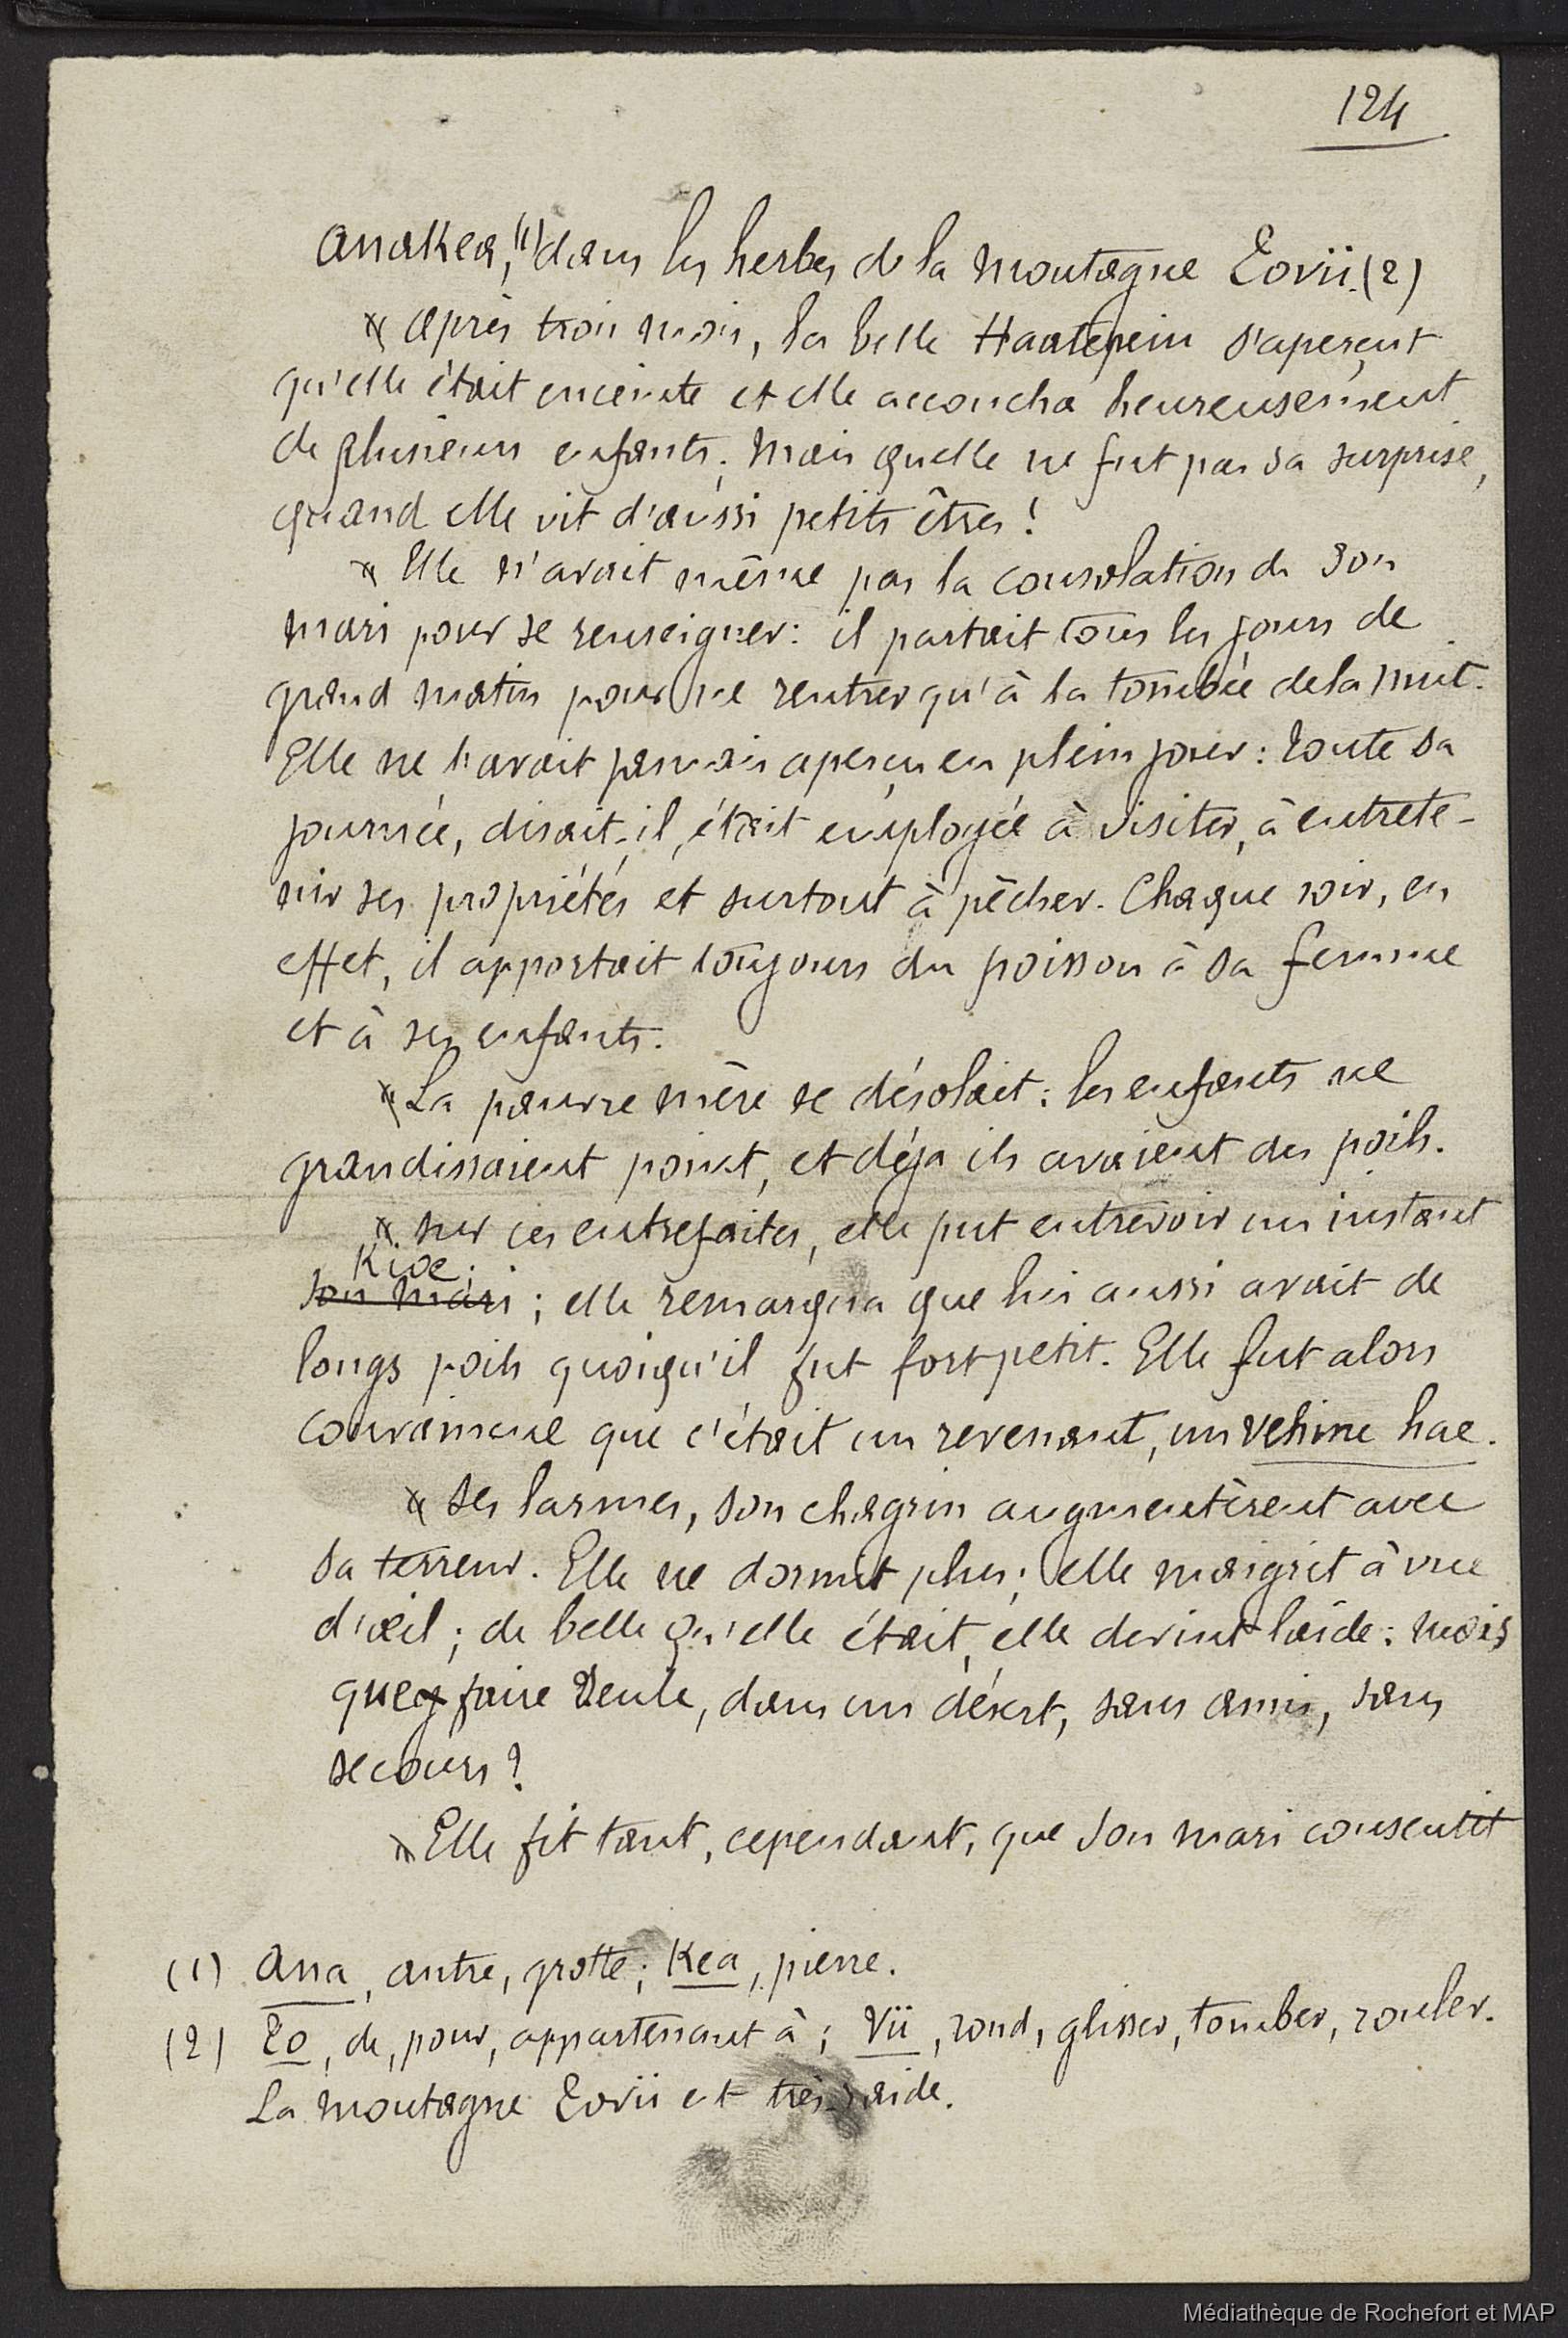 124
Anakea,(1) dans les herbes de la montagne Eovii.(2)
après trois mois, la belle Haatepeiu s'aperçut
qu'elle était enceinte et elle accoucha heureusement
de plusieurs enfants. Mais quelle ne fut pas sa surprise,
quand elle vit d'aussi petits êtres !
Elle n'avait même pas la consolation de son
mari pour se renseigner : il partait tous les jours de
grand matin pour ne rentrer qu'à la tombée de la nuit.
Elle ne l'avait jamais aperçu en plein jour : toute sa
journée, disait-il, était employée à visiter, à entrete-
nir ses propriétés et surtout à pêcher. Chaque soir, en
effet, il apportait toujours du poisson à sa femme
et à ses enfants.
La pauvre mère se désolait : les enfants ne
grandissaient point, et déja ils avaient des poils.
sur ces entrefaites, elle put entrevoir un instant
Kioe
son mari ; elle remarqua que lui aussi avait de
longs poils quoiqu'il fut fort petit. Elle fut alors
convaincue que c'était un revenant, un vehine hae.
Ses larmes, son chagrin augmentèrent avec
sa terreur. Elle ne dormit plus ; elle maigrit à vue
d'œil ; de belle qu'elle était, elle devint laide : mais
que faire seule, dans un désert, sans amis, sans
secours ?
Elle fit tant, cependant, que son mari consentit
(1) Ana, antre, grotte ; Kea, pierre.
(2) Eo, de, pour, appartenant à ; Vii, rond, glisser, tomber, rouler.
La montagne Eovii est très raide.
Médiathèque de Rochefort et MAP